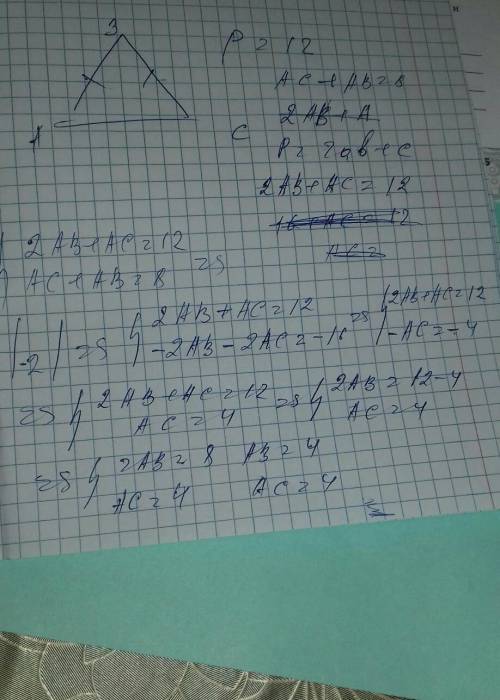 B
A
C
P = 12
AC + AB = 8
2AB + A
P = 2ab + c
2AB + AC = 12
16 + AC = 12
AC =
{ 2AB + AC = 12
AC + AB = 8 =>
|-2| => { 2AB + AC = 12
-2AB - 2AC = -16 => { 2AB + AC = 12
-AC = -4
=> { 2AB + AC = 12
AC = 4 => { 2AB = 12 - 4
AC = 4
=> { 2AB = 8
AC = 4
AB = 4
AC = 4